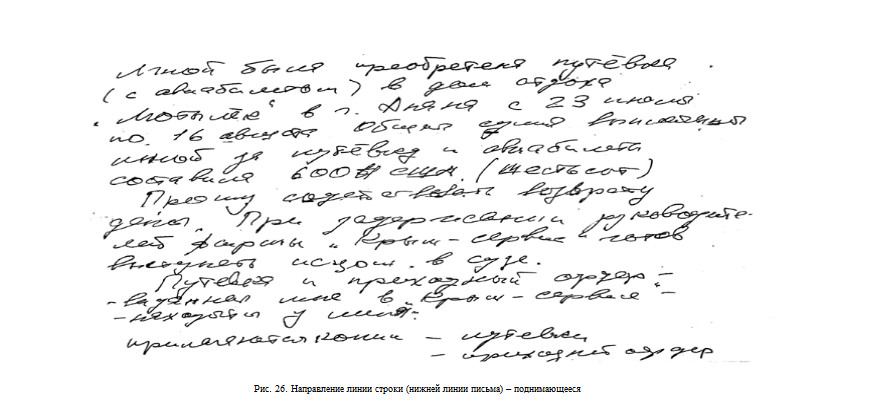 Мной была приобретена путёвка
(с авиабилетом) в дом отдыха
в г. с 23 июля
по 16 августа Общая сумма
мной за путёвку и авиабилеты
составила 600 (шестьсот)
Прошу возврату
При задержании руководите-
лей фирмы „Крым-сервис" готов
выступить истцом в суде.
Путевка и приходный ордер –
мне в „Крым-сервисе" –
у меня.
копии – путевки
– приходный ордер
Рис. 26. Направление линии строки (нижней линии письма) – поднимающееся